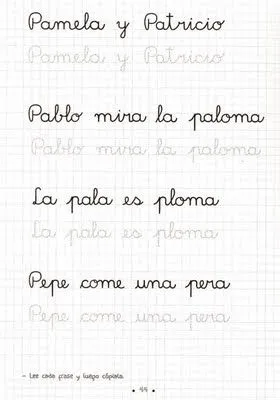 Pamela y Patricio
Pamela y Patricio
Pablo mira la paloma
Pablo mira la paloma
La pala es ploma
La pala es ploma
Pepe come una pera
Pepe come una pera
- Lee cada frase y luego cópiala.
• 44 •